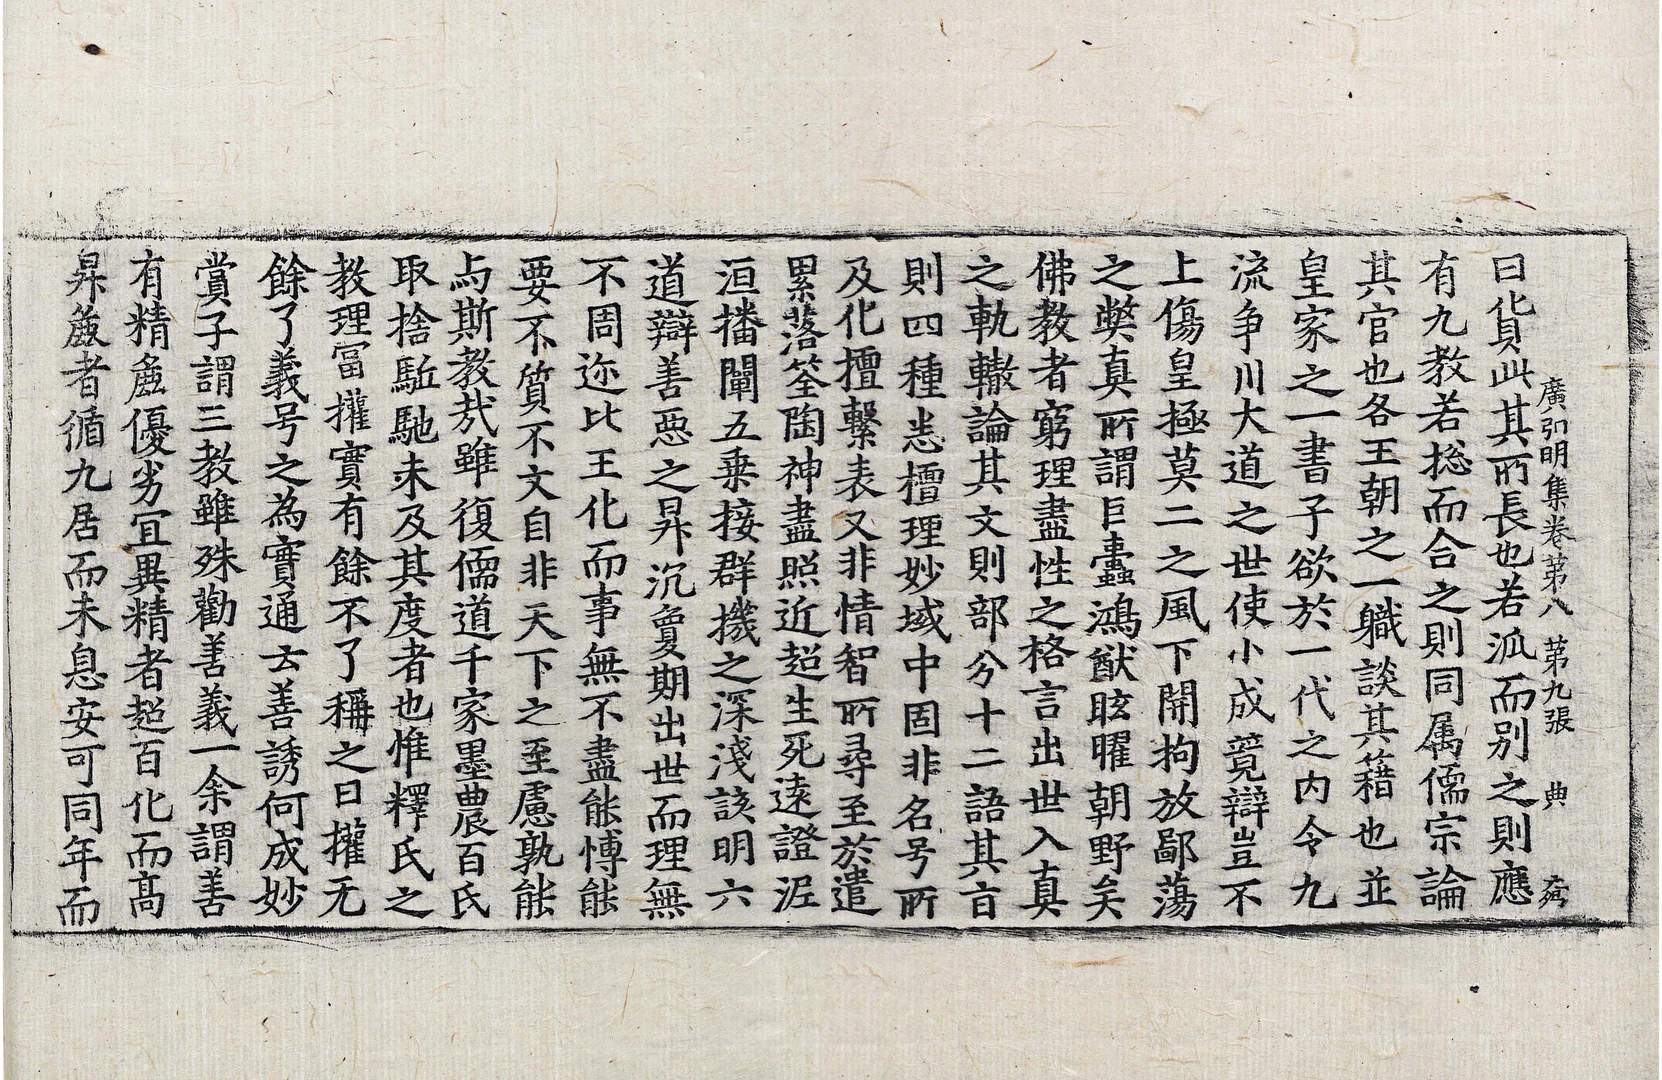 廣弘明集卷第八 第九張 典
曰化貨此其所長也若派而別之則應
有九教若捴而合之則同属儒宗論
其官也各王朝之一職談其籍也並
皇家之一書子欲於一代之内令九
流争川大道之世使小成競辯豈不
上傷皇極莫二之風下開拘放鄙蕩
之弊真所謂巨蠹鴻猷眩曜朝野矣
佛教者窮理盡性之格言出世入真
之軌轍論其文則部分十二語其旨
則四種悉檀理妙域中固非名号所
及化擅繫表又非情智所尋至於遣
累落筌陶神盡照近超生死遠證泥
洹播闡五乗接群機之深淺該明六
道辯善惡之昇沉敻期出世而理無
不周迩比王化而事無不盡能博能
要不質不文自非天下之至慮孰能
与斯教㢤雖復儒道千家墨農百氏
取捨駈馳未及其度者也惟釋氏之
教理冨權實有餘不了稱之曰權无
餘了義号之為實通云善誘何成妙
賞子謂三教雖殊勸善義一余謂善
有精麁優劣宜異精者超百化而髙
昇麁者循九居而未息安可同年而